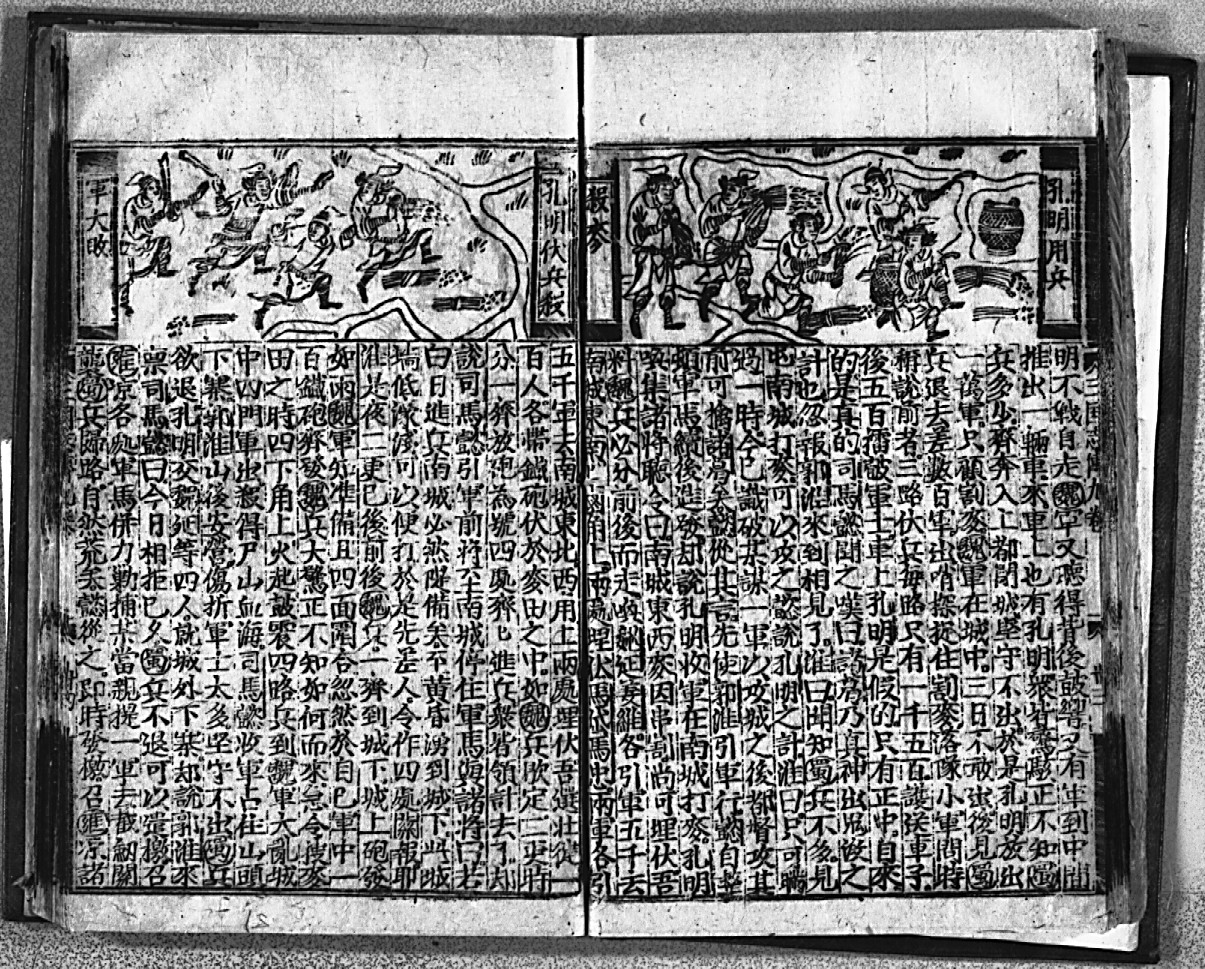 孔明用兵
殺麥
三国志傳九卷
明不戰自走魏軍又聽得背後鼓響又有軍到中間
推出一輛車來車上也有孔明衆皆驚駭正不知蜀
兵多少齊奔入上邽閉城堅守不出於是孔明放出
一萬軍只顧割麥魏軍在城中三日不敢出後見蜀
兵退去差數百軍出哨探捉住割麥落隊小軍問時
稱說前者三路伏兵每路只有一千五百護送車子
後五百擂鼓軍士車上孔明是假的只有正中自來
的是真的司馬懿聞之嘆曰諸葛乃真神出鬼沒之
計也忽報郭淮來到相見了淮曰聞知蜀兵不多見
屯南城打麥可以攻之懿說孔明之計淮曰只可瞞
過一時今已識破某謀一軍以攻城之後都督攻其
前可擒諸葛矣懿從其言先使郭淮引軍行懿自整
頓軍馬續後進發却說孔明收軍在南城打麥孔明
喚集諸將聽令曰南城東西麥因串割尚可埋伏吾
料魏兵必分前後而走喚魏延姜維各引軍五千去
南城東南角上兩處埋伏馬岱馬忠兩軍各引
孔明伏兵殺
軍大敗
五千軍去南城東北西角上兩處埋伏吾選壯徒一
百人各帶鐵砲伏於麥田之中如魏兵欣定二更時
分一齊放砲為號四處齊齊進兵衆皆領計去了却
說司馬懿引軍前將至南城停住軍馬與諸將曰若
白日進兵南城必然隄備矣不黃昏湧到城下此城
墻低濠淺可以便打於是先差人令作四處關報耶
淮是夜二更已後前後魏兵一齊到城下城上砲發
如雨魏軍知准備且四面圍合忽然於自已軍中一
百鐵砲齊發魏兵大驚正不知如何而來急令搜麥
田之時四下角上火起鼓震四路兵到魏軍大亂城
中四門軍出殺得尸山血海司馬懿收軍占住山頭
下寨郭淮山後安營傷折軍士太多堅守不出蜀兵
欲退孔明交魏延等四人就城外下寨却說郭淮來
禀司馬懿曰今日相拒已久蜀兵不退可以遣檄召
雍京各處軍馬併力勦捕某當親提一軍去截劒關
襲蜀兵歸路自然荒矣懿從之即時發檄召雍凉諸